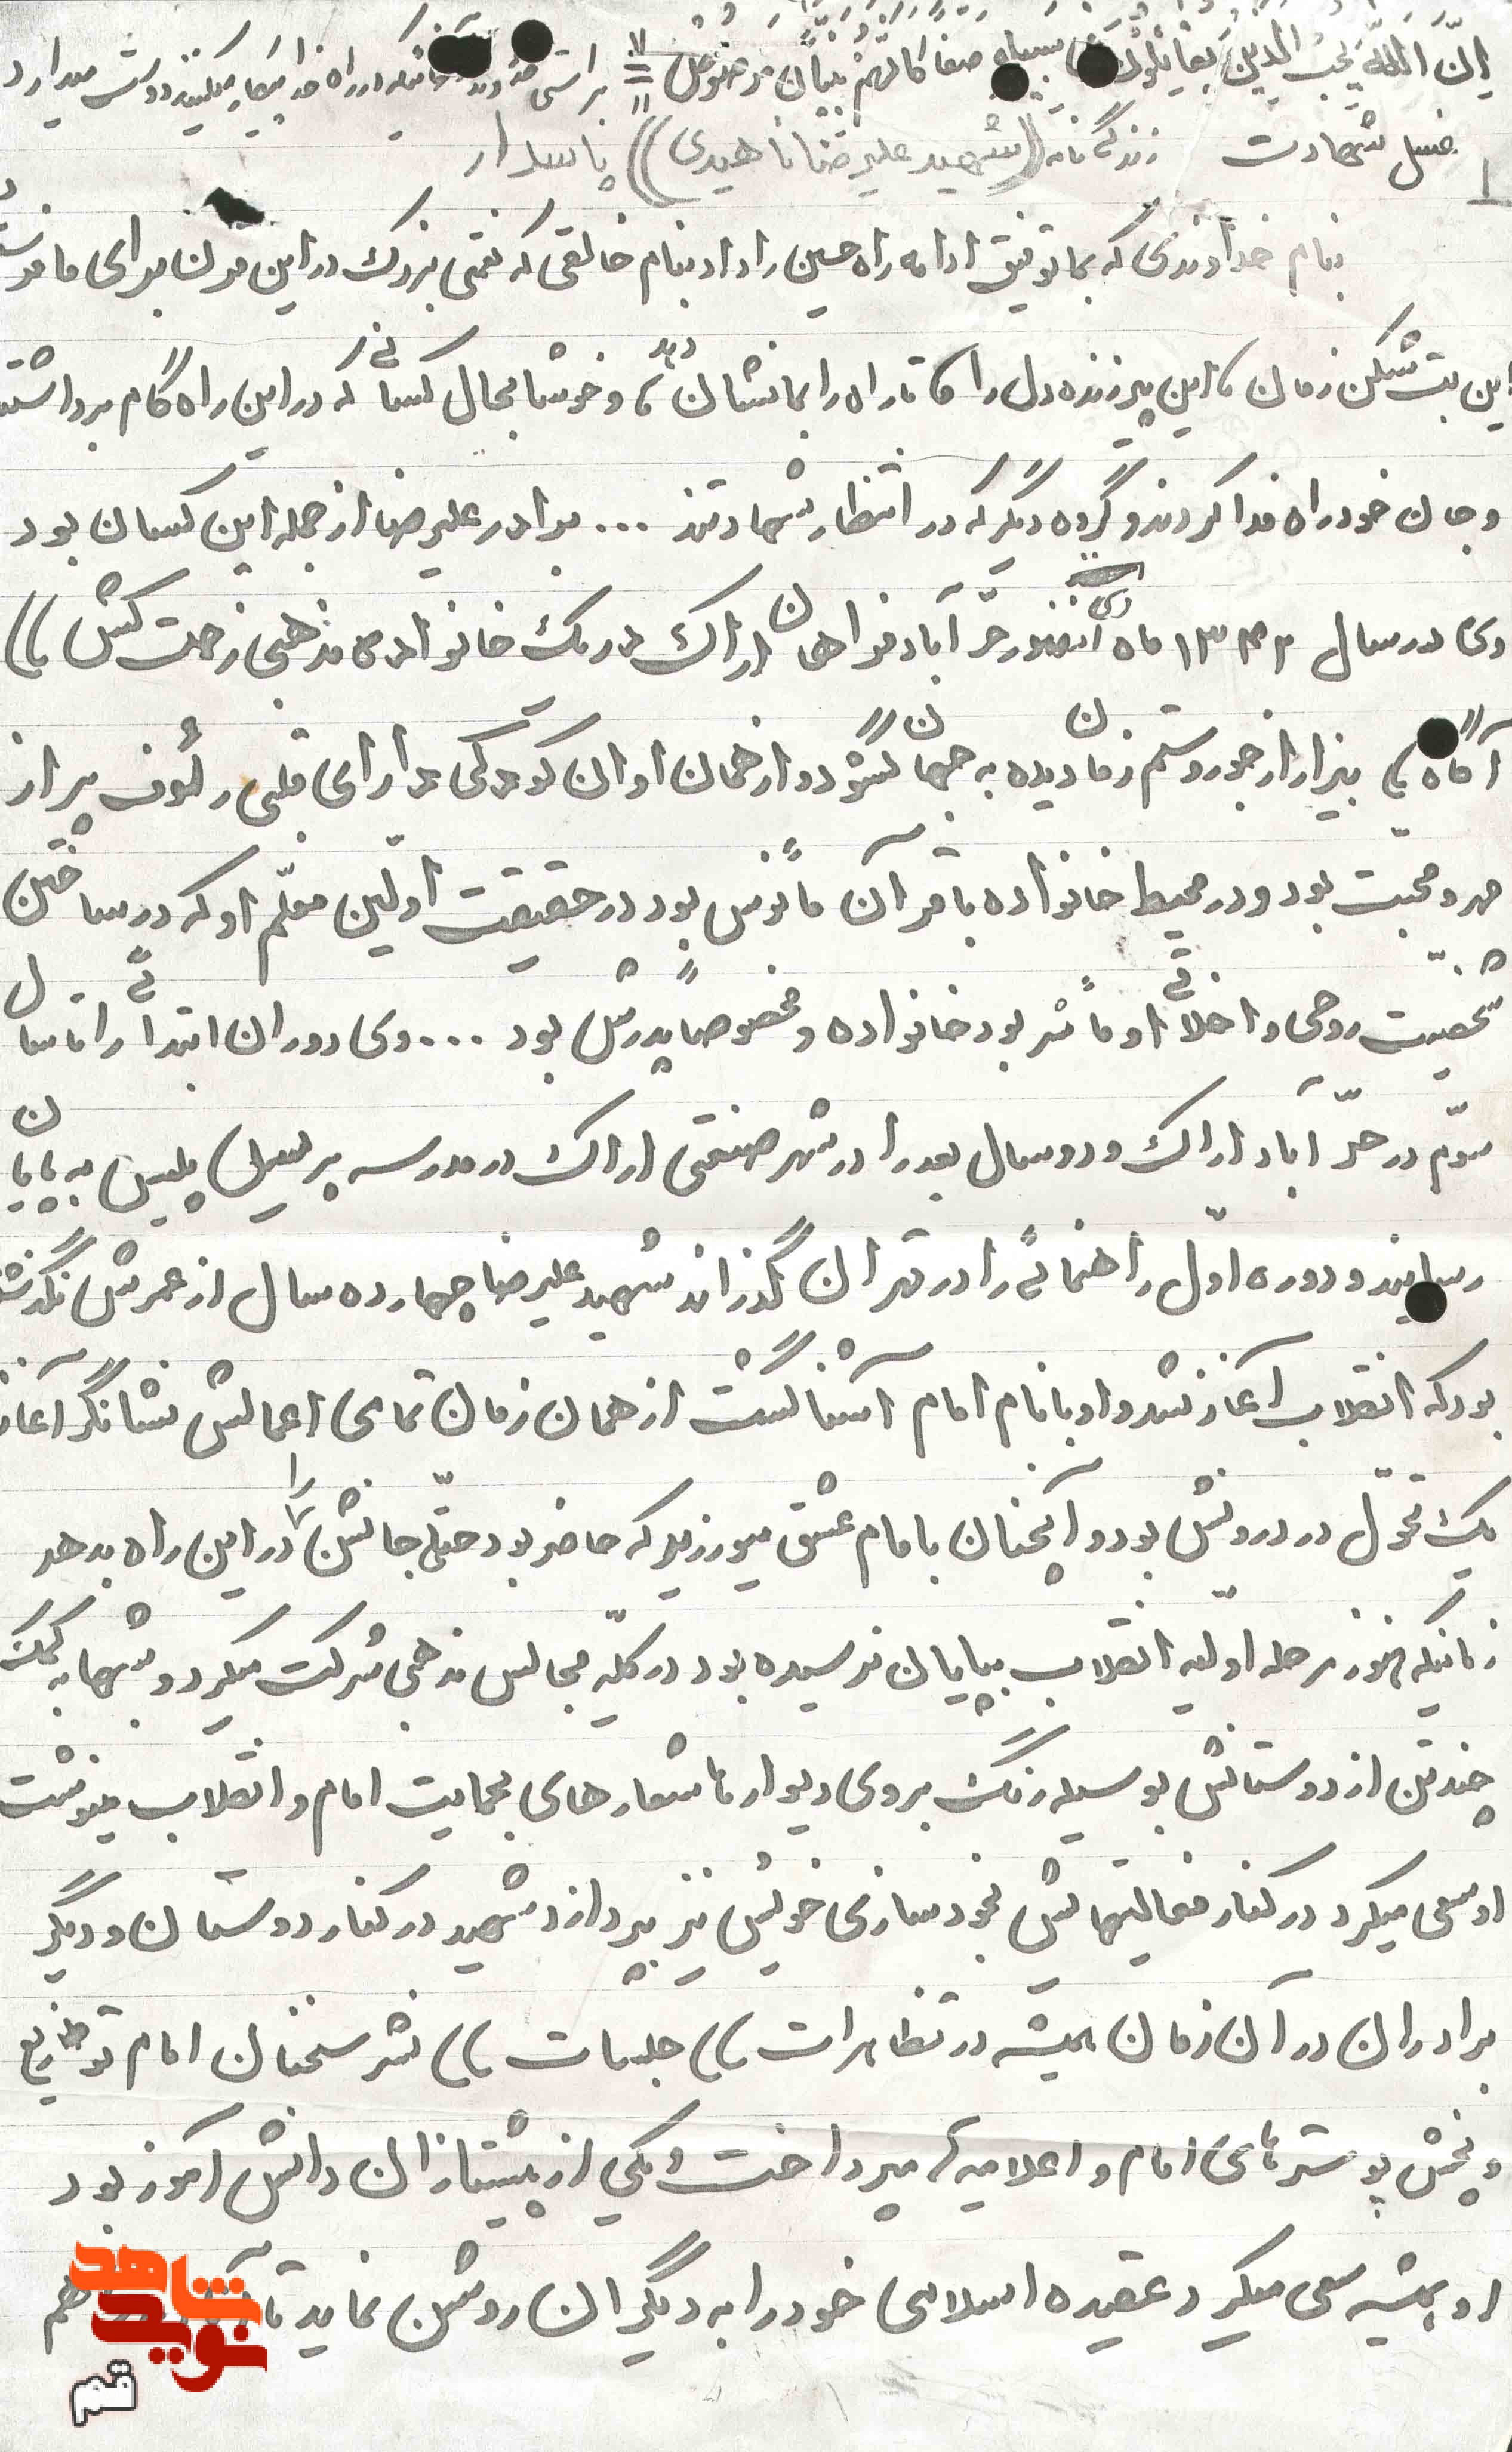 اِنَّ اللّهَ یُحِبُ الَّذینَ یُقاتِلوُنَ سبیلِهِ صفا کانّهم بنیانٌ مرصوص = براستی در راه خدا پیکار میکنند دوست میدارد
غسل شهادت زندگی نامه ((شهید علیرضا ناهیدی)) پاسدار
بنام خداوندی که بما توفیق ادامه راه حسین را داد بنام خالقی که نعمتی بزرگ در این قرن برای ما فرستاد
این بت شکن زمان ، این پیر زنده دل را تا راه را بما نشان دهد ، و خوشا بحال کسانی که در این راه گام برداشتند
و جان خود راه فدا کردند و گروه دیگر که در انتظار شهادتند ... برادر علیرضا از جمله این کسان بود
وی در سال ۱۳۴۲ ماه در حرّ آباد فراهان اراک در یک خانواده مذهبی زحمت کش ))
آگاه ، بیزار از جور و ستم زمان دیده به جهان گشود و از همان اوان کودکی دارای قلبی رئوف پر از
مهر و محبّت بود و در محیط خانواده با قرآن مأنوس بود در حقیقت اوّلین معلّم او که در ساختن
شخصیّت روحی و اخلاقی او مأثر بود خانواده و مخصوصاً پدرش بود ... وی دوران ابتدائی را تا سال
سوّم در حرّ آباد اراک و دو سال بعد را در شهر صنعتی اراک در مدرسه پرسیل پلیس به پایان
رسانید و دوره اوّل راهنمائی را در تهران گذراند شهید علیرضا چهارده سال از عمرش نگذشته
بود که انقلاب آغاز شد و او با نام امام آشنا گشت از همان زمان تمامی اعمالش نشانگر آغاز
یک تحوّل در درونش بود و آنچنان با امام عشق میورزید که حاضر بود حتّی جانش را در این راه بدهد
زمانیکه هنوز مرحله اوّلیه انقلاب بپایان نرسیده بود در کلّیه مجالس مذهبی شرکت میکرد و شبها به کمک
چند تن از دوستانش بوسیله رنگ بروی دیوارها شعارهای بحمایت امام و انقلاب مینوشت
او سعی میکرد در کنار فعالیتهایش بخود سازی خویش نیز بپردازد شهید در کنار دوستان و دیگر
برادران در آن زمان همیشه در تظاهرات )) جلسات )) نشر سخنان امام توزیع
و پخش پوسترهای امام و اعلامیه میپرداخت و یکی از پیشتازان دانش آموز بود
او همیشه سعی میکرد عقیده اسلامی خود را به دیگران روشن نماید تا هم
نوید شاهد
قم